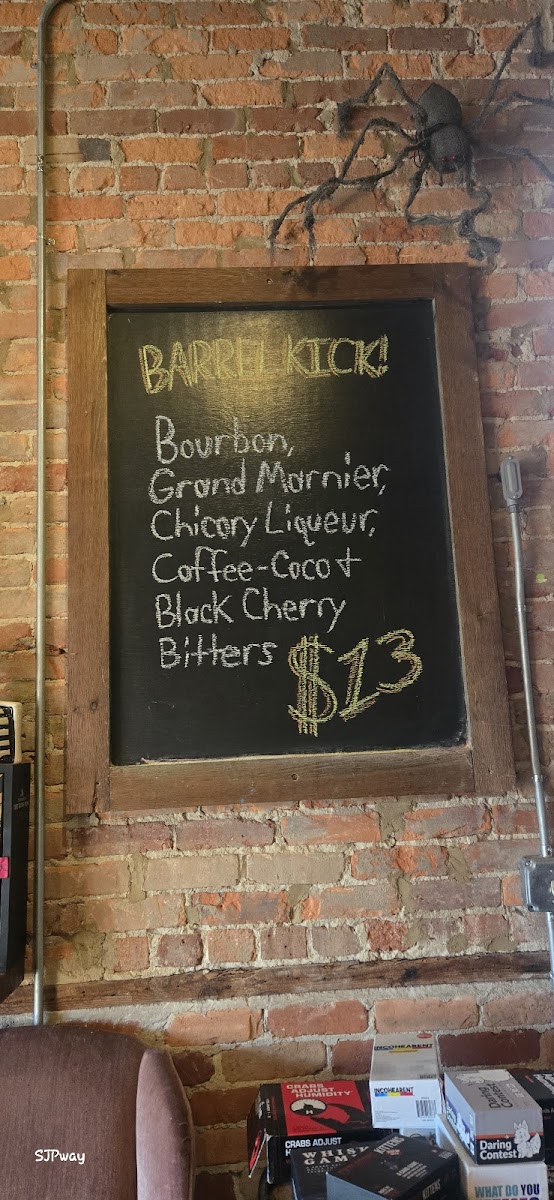 BARREL KICK!
Bourbon,
Grand Marnier,
Chicory Liqueur,
Coffee-Coco +
Black Cherry
Bitters $13
INCOHEARENT
CRABS
ADJUST
HUMIDITY
INCOHEARENT
CRABS ADJUST
Daring
Contest
WHISK
GAM
KITTENS
WHAT DO YOU
SJPway